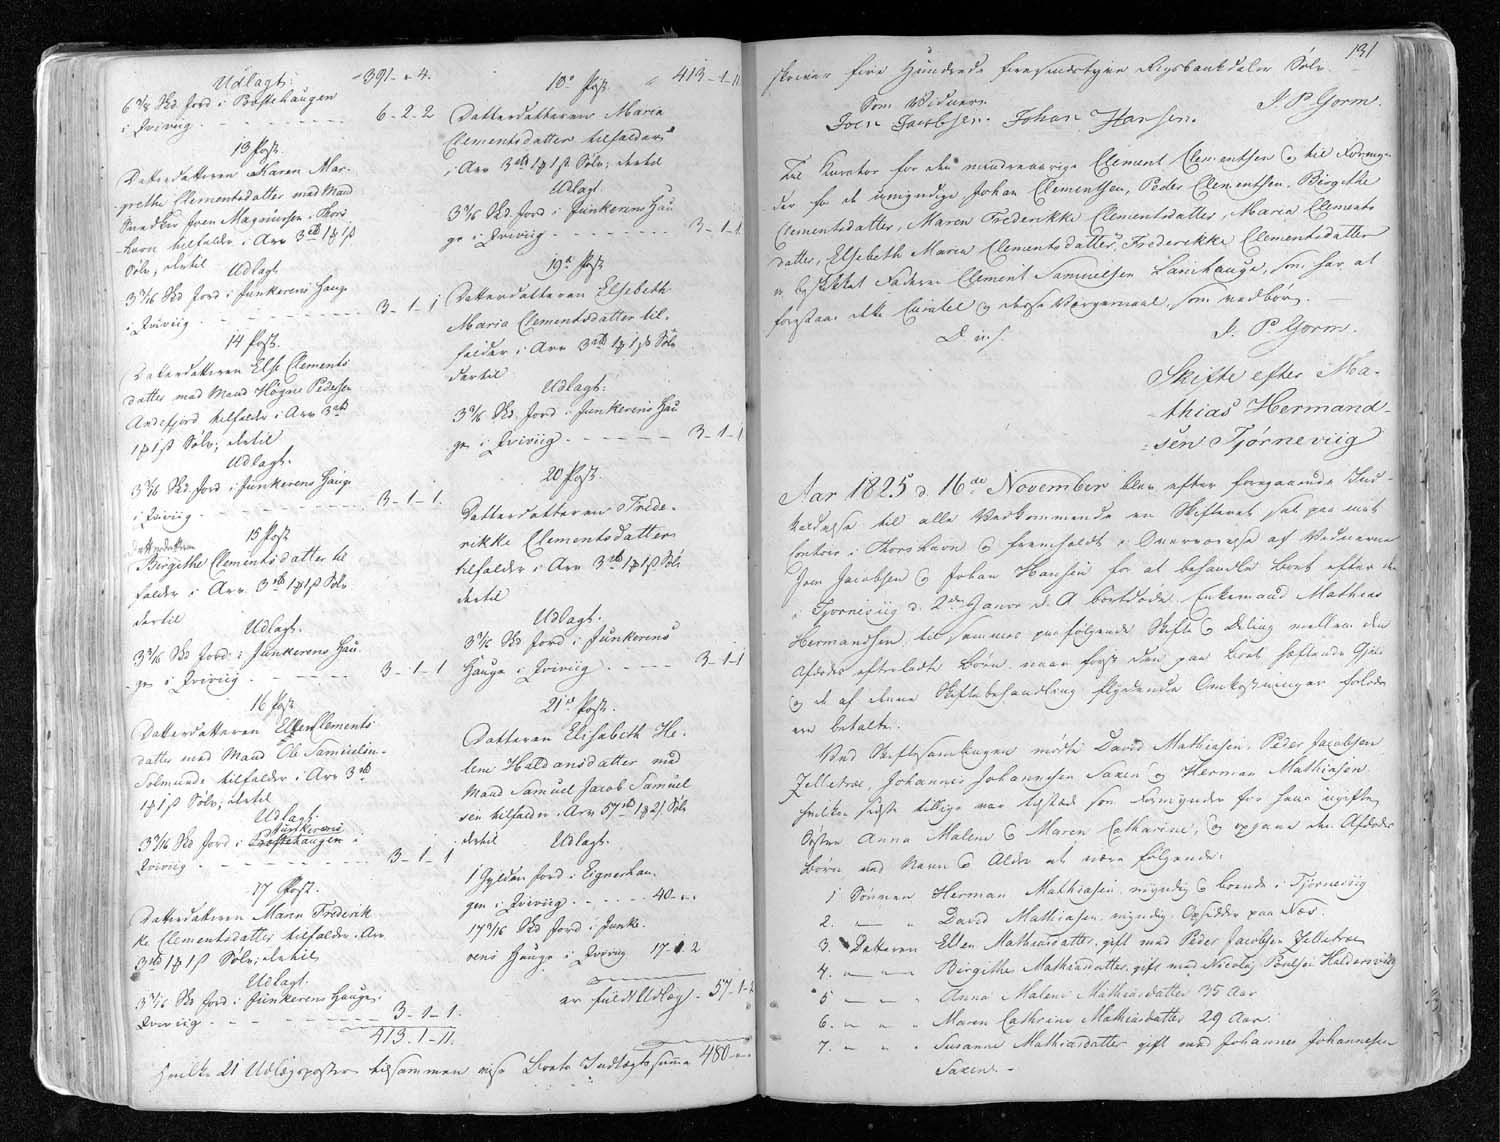 Udlagt: 391 - " 4.
6 7/8 Skd. Jord i Bøstehaugen
i Qviviig - - - 6-2-2
13 Post.
Datterdatteren Karen Mar-
grethe Clementsdatter med Mand
Snedker Joen Magnusen, Thors-
havn tilfalder i Arv 3rbd 1 ℔ 1 ß
Sølv; dertil
Udlagt.
3 7/16 Skd Jord i Junkerens Hauge
i Qviviig - - - 3-1-1
14 Post.
Datterdatteren Else Clements
datter med Mand Høgne Pedersen
Andefjord tilfalder i Arv 3rbd
1 ℔ 1 ß Sølv; dertil
Udlagt.
3 7/16 Skd. Jord i Junkerens Hauge
i Qviviig - - - 3-1-1.
15 Post
Datterdatteren
Birgithe Clementsdatter til
falder i Arv 3rbd 1 ℔ 1 ß Sølv
dertil
Udlagt.
3 7/16 Skd Jord i Junkerens Hau
ge i Qviviig - - - 3-1-1
16 Post
Datterdatteren Ellen Clements
datter med Mand Ole Samuelsen
Solmunde tilfalder i Arv 3rbd
1 ℔ 1 ß Sølv; dertil
Udlagt.
Junkerens
3 7/16 Skd Jord i Bøstehaugen i
Qviviig - - - 3-1-1
17 Post.
Datterdatteren Maren Frederik
ke Clementsdatter tilfalder i Arv
3rbd 1 ℔ 1 ß Sølv; dertil
Udlagt.
3 7/16 Skd Jord i Junkerens Hauge i
Qviviig - - - 3-1-1.
413-1-11.
18de Post. 413-1-11
Datterdatteren Maria
Clementsdatter tilfalder
i Arv 3rbd 1 ℔ 1 ß Sølv; dertil
Udlagt
3 7/16 Skd. Jord i Junkerens Hau
ge i Qviviig - - - 3-1-1
19de Post
Datterdatteren Elsebeth
Maria Clementsdatter til-
falder i Arv 3rbd 1 ℔ 1 ß Sølv
dertil
Udlagt.
3 7/16 Skd. Jord i Junkerens Hau
ge i Qviviig - - - 3-1-1
20 Post.
Datterdatteren Frede-
rikke Clementsdatter
tilfalder i Arv 3rbd 1 ℔ 1 ß Sølv
dertil
Udlagt.
3 7/16 Skd Jord i Junkerens
Hauge i Qviviig - - - 3-1-1
21de Post.
Datteren Elisabeth He-
lene Haldansdatter med
Mand Samuel Jacob Samuel
sen tilfalder i Arv 57rbd 1 ℔ 2 ß Sølv
dertil Udlagt.
1 Gylden Jord i Eignerhau
gen i Qviviig - - - 40- " "
17 3/16 Skd Jord i Junke-
rens Hauge i Qviviig 17-1-2
er fuldt Udlagt - 57-1-2
hvilke 21 Udlægsposter tilsammen vise Boets Indtægtssumma 480 - " "
131
skriver fire Hundrede firesindstyve Rigsbankdaler Sølv.
Som Vidner I. P. Gorm.
Joen Jacobsen. Johan Hansen.
Til Kurator for den mindreaarige Clement Clementsen og til Formyn-
der for de umyndige Johan Clementsen, Peder Clementsen, Birgithe
Clementsdatter, Maren Frederikke Clementsdatter, Maria Clements
datter, Elsebeth Maria Clementsdatter, Frederikke Clementsdatter
er beskikket Faderen Clement Samuelsen Lanihauge, som har at
forestaae dette Curatel og disse Vergemaal, som vedbør.
D. u. s. I. P. Gorm.
Skifte efter Ma-
thias Hermand-
sen Tjørneviig
Aar 1825 d. 16de November blev efter foregaaende Ind-
kaldelse til alle Vedkommende en Skifteret sat paa mit
Contoir i Thorshavn og fremholdt i Overværelse af Vidnerne
Joen Jacobsen og Johan Hansen for at behandle Boet efter den
i Tjørneviig d. 2den Janr. d. A. bortdøde Enkemand Mathias
Hermandsen til sammes paafølgende Skifte og Deling mellem den
Afdødes efterladte Børn, naar først den paa Boet hæftende Gjæld
og de af denne Skiftebehandling flydende Omkostninger forlods
ere betalte.
Ved Skiftesamlingen mødte David Mathiasen, Peder Jacobsen
Zelletræ, Johannes Johannesen Saxen og Herman Mathiasen
hvilken sidste tillige var tilstæde som Formynder for hans ugifte
Søstre Anna Malene og Maren Catharine, og opgave den Afdødes
Børn ved Navn og Alder at være følgende:
1 Sønnen Herman Mathiasen, myndig og boende i Tjørneviig
2. — " David Mathiasen, myndig, Opsidder paa Næs.
3. Datteren Ellen Mathiasdatter, gift med Peder Jacobsen Zelletræ
4. — " — Birgithe Mathiasdatter, gift med Nicolaj Poulsen Haldersviig
5 — " — Anna Malene Mathiasdatter 35 Aar
6. — " " Maren Cathrine Mathiasdatter 29 Aar.
7. — " " Susanne Mathiasdatter gift med Johannes Johannesen
Saxen. -